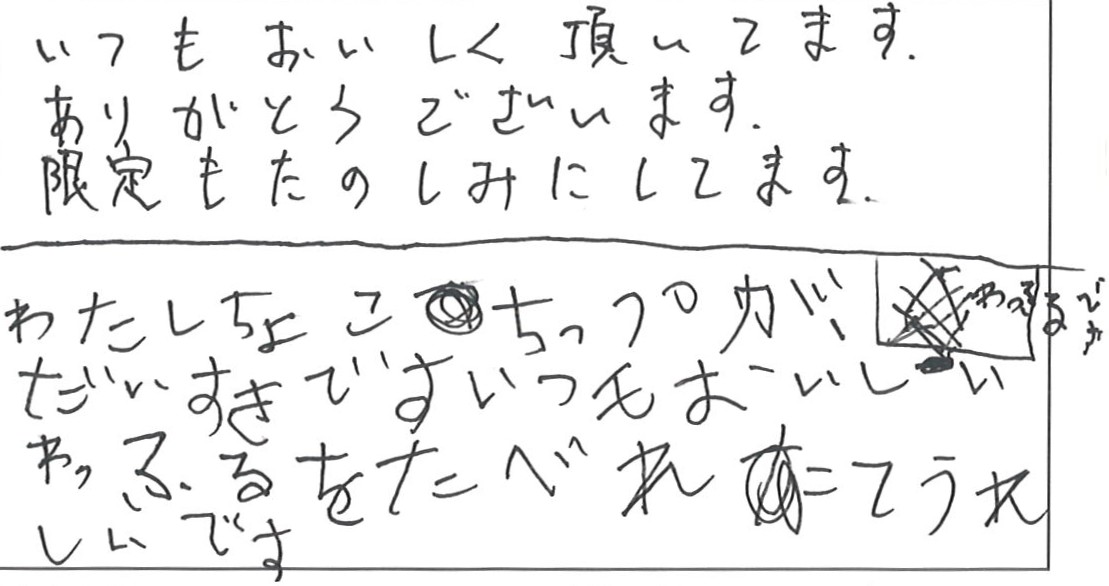 いつもおいしく頂いてます.
ありがとうございます.
限定もたのしみにしてます.
わたしちょこちっぷが、わっふるです
だいすきですいつもおいしい
わっふるをたべれてうれ
しいです